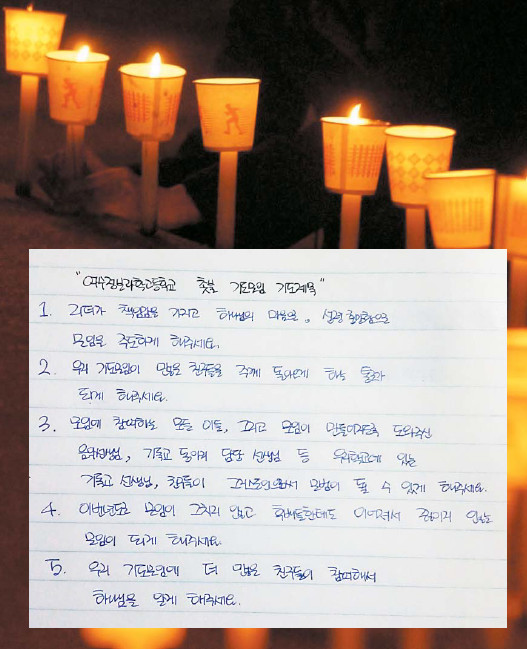 "여수정보과학고등학교 촛불 기도모임 기도제목"
1. 리더가 책임감을 가지고 하나님의 마음으로, 성령 충만함으로
모임을 주도하게 해주세요.
2. 우리 기도모임이 많은 친구들을 주께 돌아오게 하는 통로가
되게 해주세요.
3. 모임에 참여하는 모든 이들, 그리고 모임이 만들어지도록 도와주신
음악선생님, 기독교 동아리 담당 선생님 등 우리학교에 있는
기독교 선생님, 친구들이 그리스도인으로서 모범이 될 수 있게 해주세요.
4. 이번년도로 모임이 그치지 않고 후배들한테도 이어져서 끊이지 않는
모임이 되게 해주세요.
5. 우리 기도모임에 더 많은 친구들이 참여해서
하나님을 알게 해주세요.